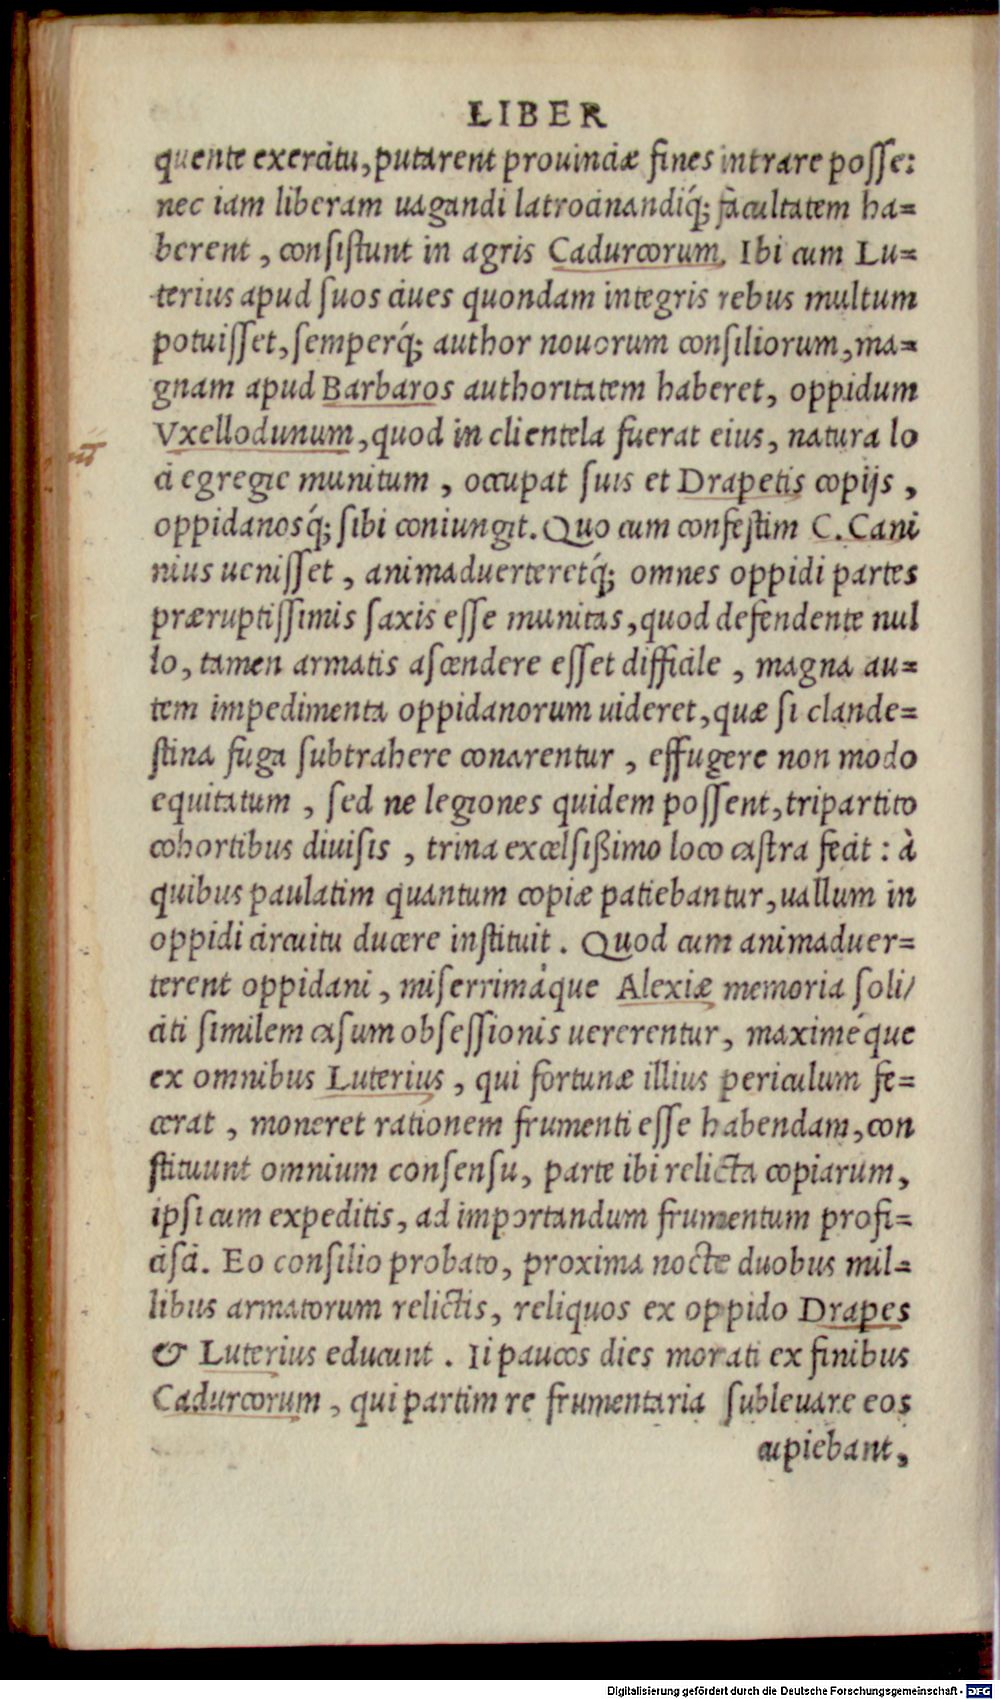 LIBER
quente exercitu, putarent prouinciæ fines intrare posse:
nec iam liberam uagandi latrocinandiq́; facultatem ha=
berent, consistunt in agris Cadurcorum. Ibi cum Lu=
terius apud suos ciues quondam integris rebus multum
potuisset, semperq́; author nouorum consiliorum, ma=
gnam apud Barbaros authoritatem haberet, oppidum
Vxellodunum, quod in clientela fuerat eius, natura lo
ci egregie munitum, occupat suis et Drapetis copijs,
oppidanosq́; sibi coniungit. Quo cum confestim C. Cani
nius uenisset, animaduerteretq́; omnes oppidi partes
præruptissimis saxis esse munitas, quod defendente nul
lo, tamen armatis ascendere esset difficile, magna au=
tem impedimenta oppidanorum uideret, quæ si clande=
stina fuga subtrahere conarentur, effugere non modo
equitatum, sed ne legiones quidem possent, tripartito
cohortibus diuisis, trina excelsißimo loco castra fecit: à
quibus paulatim quantum copiæ patiebantur, uallum in
oppidi circuitu ducere instituit. Quod cum animaduer=
terent oppidani, miserrimáque Alexiæ memoria soli/
citi similem casum obsessionis uererentur, maximéque
ex omnibus Luterius, qui fortunæ illius periculum fe=
cerat, moneret rationem frumenti esse habendam, con
stituunt omnium consensu, parte ibi relicta copiarum,
ipsi cum expeditis, ad importandum frumentum profi=
cisci. Eo consilio probato, proxima nocte duobus mil=
libus armatorum relictis, reliquos ex oppido Drapes
& Luterius educunt. Ii paucos dies morati ex finibus
Cadurcorum, qui partim re frumentaria subleuare eos
cupiebant,
Digitalisierung gefördert durch die Deutsche Forschungsgemeinschaft - DFG